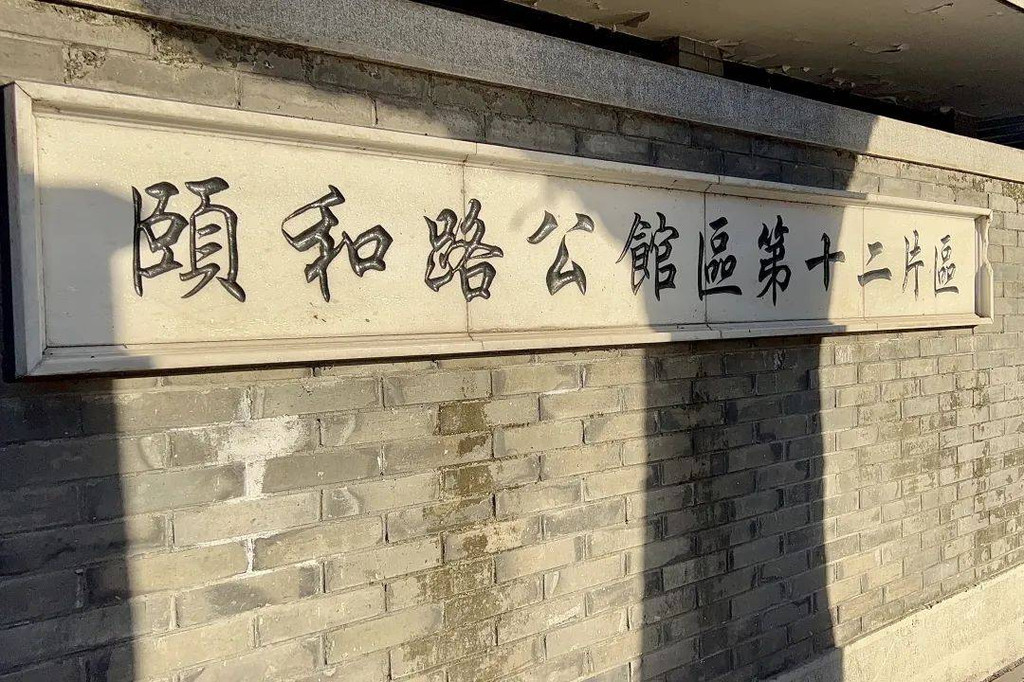 頤和路公館區第十二片區